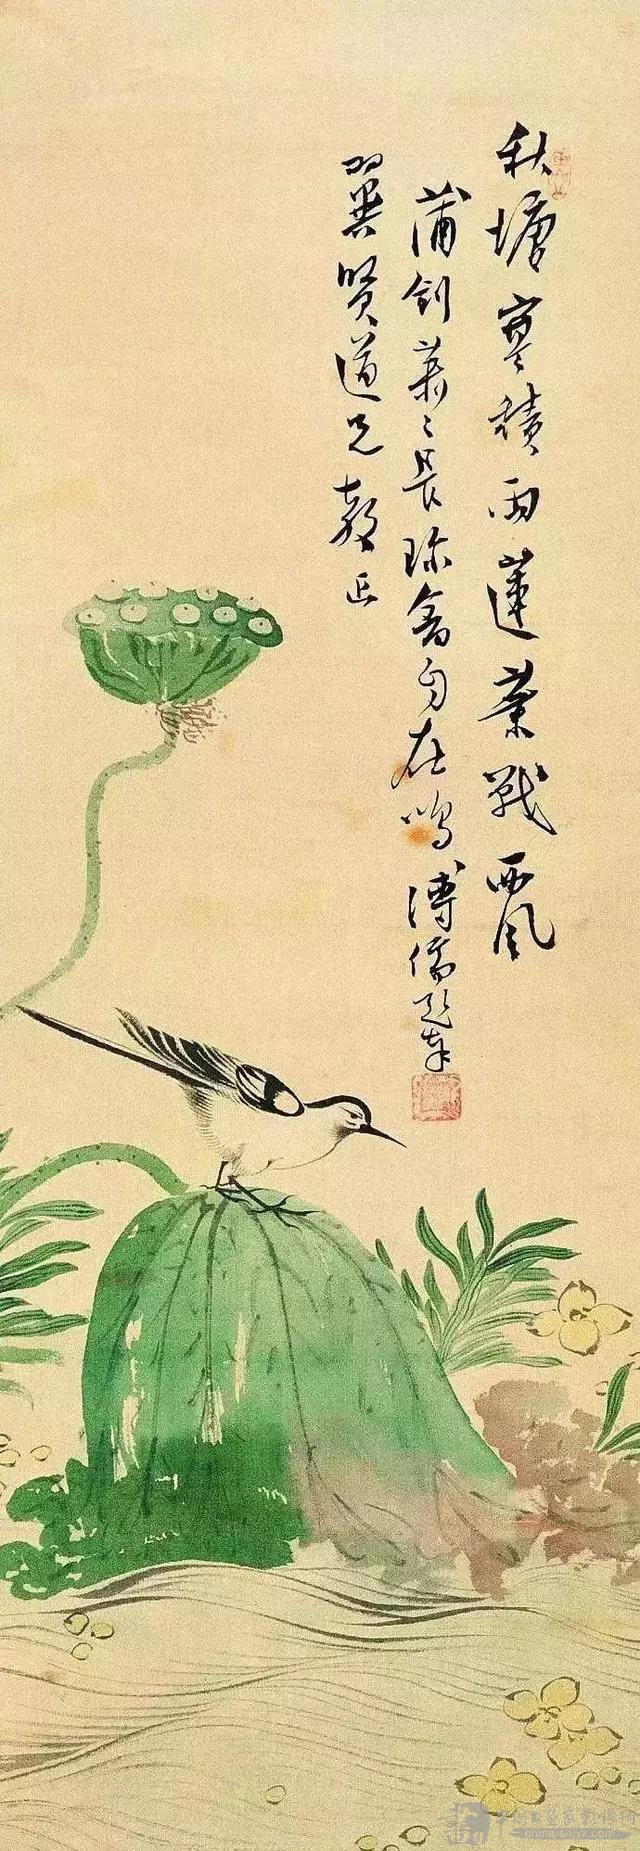 秋塘寒積雨蓮葉戰西風
蒲劍葉〻長珍禽自在鳴溥儒題奉
翼賢道兄教正